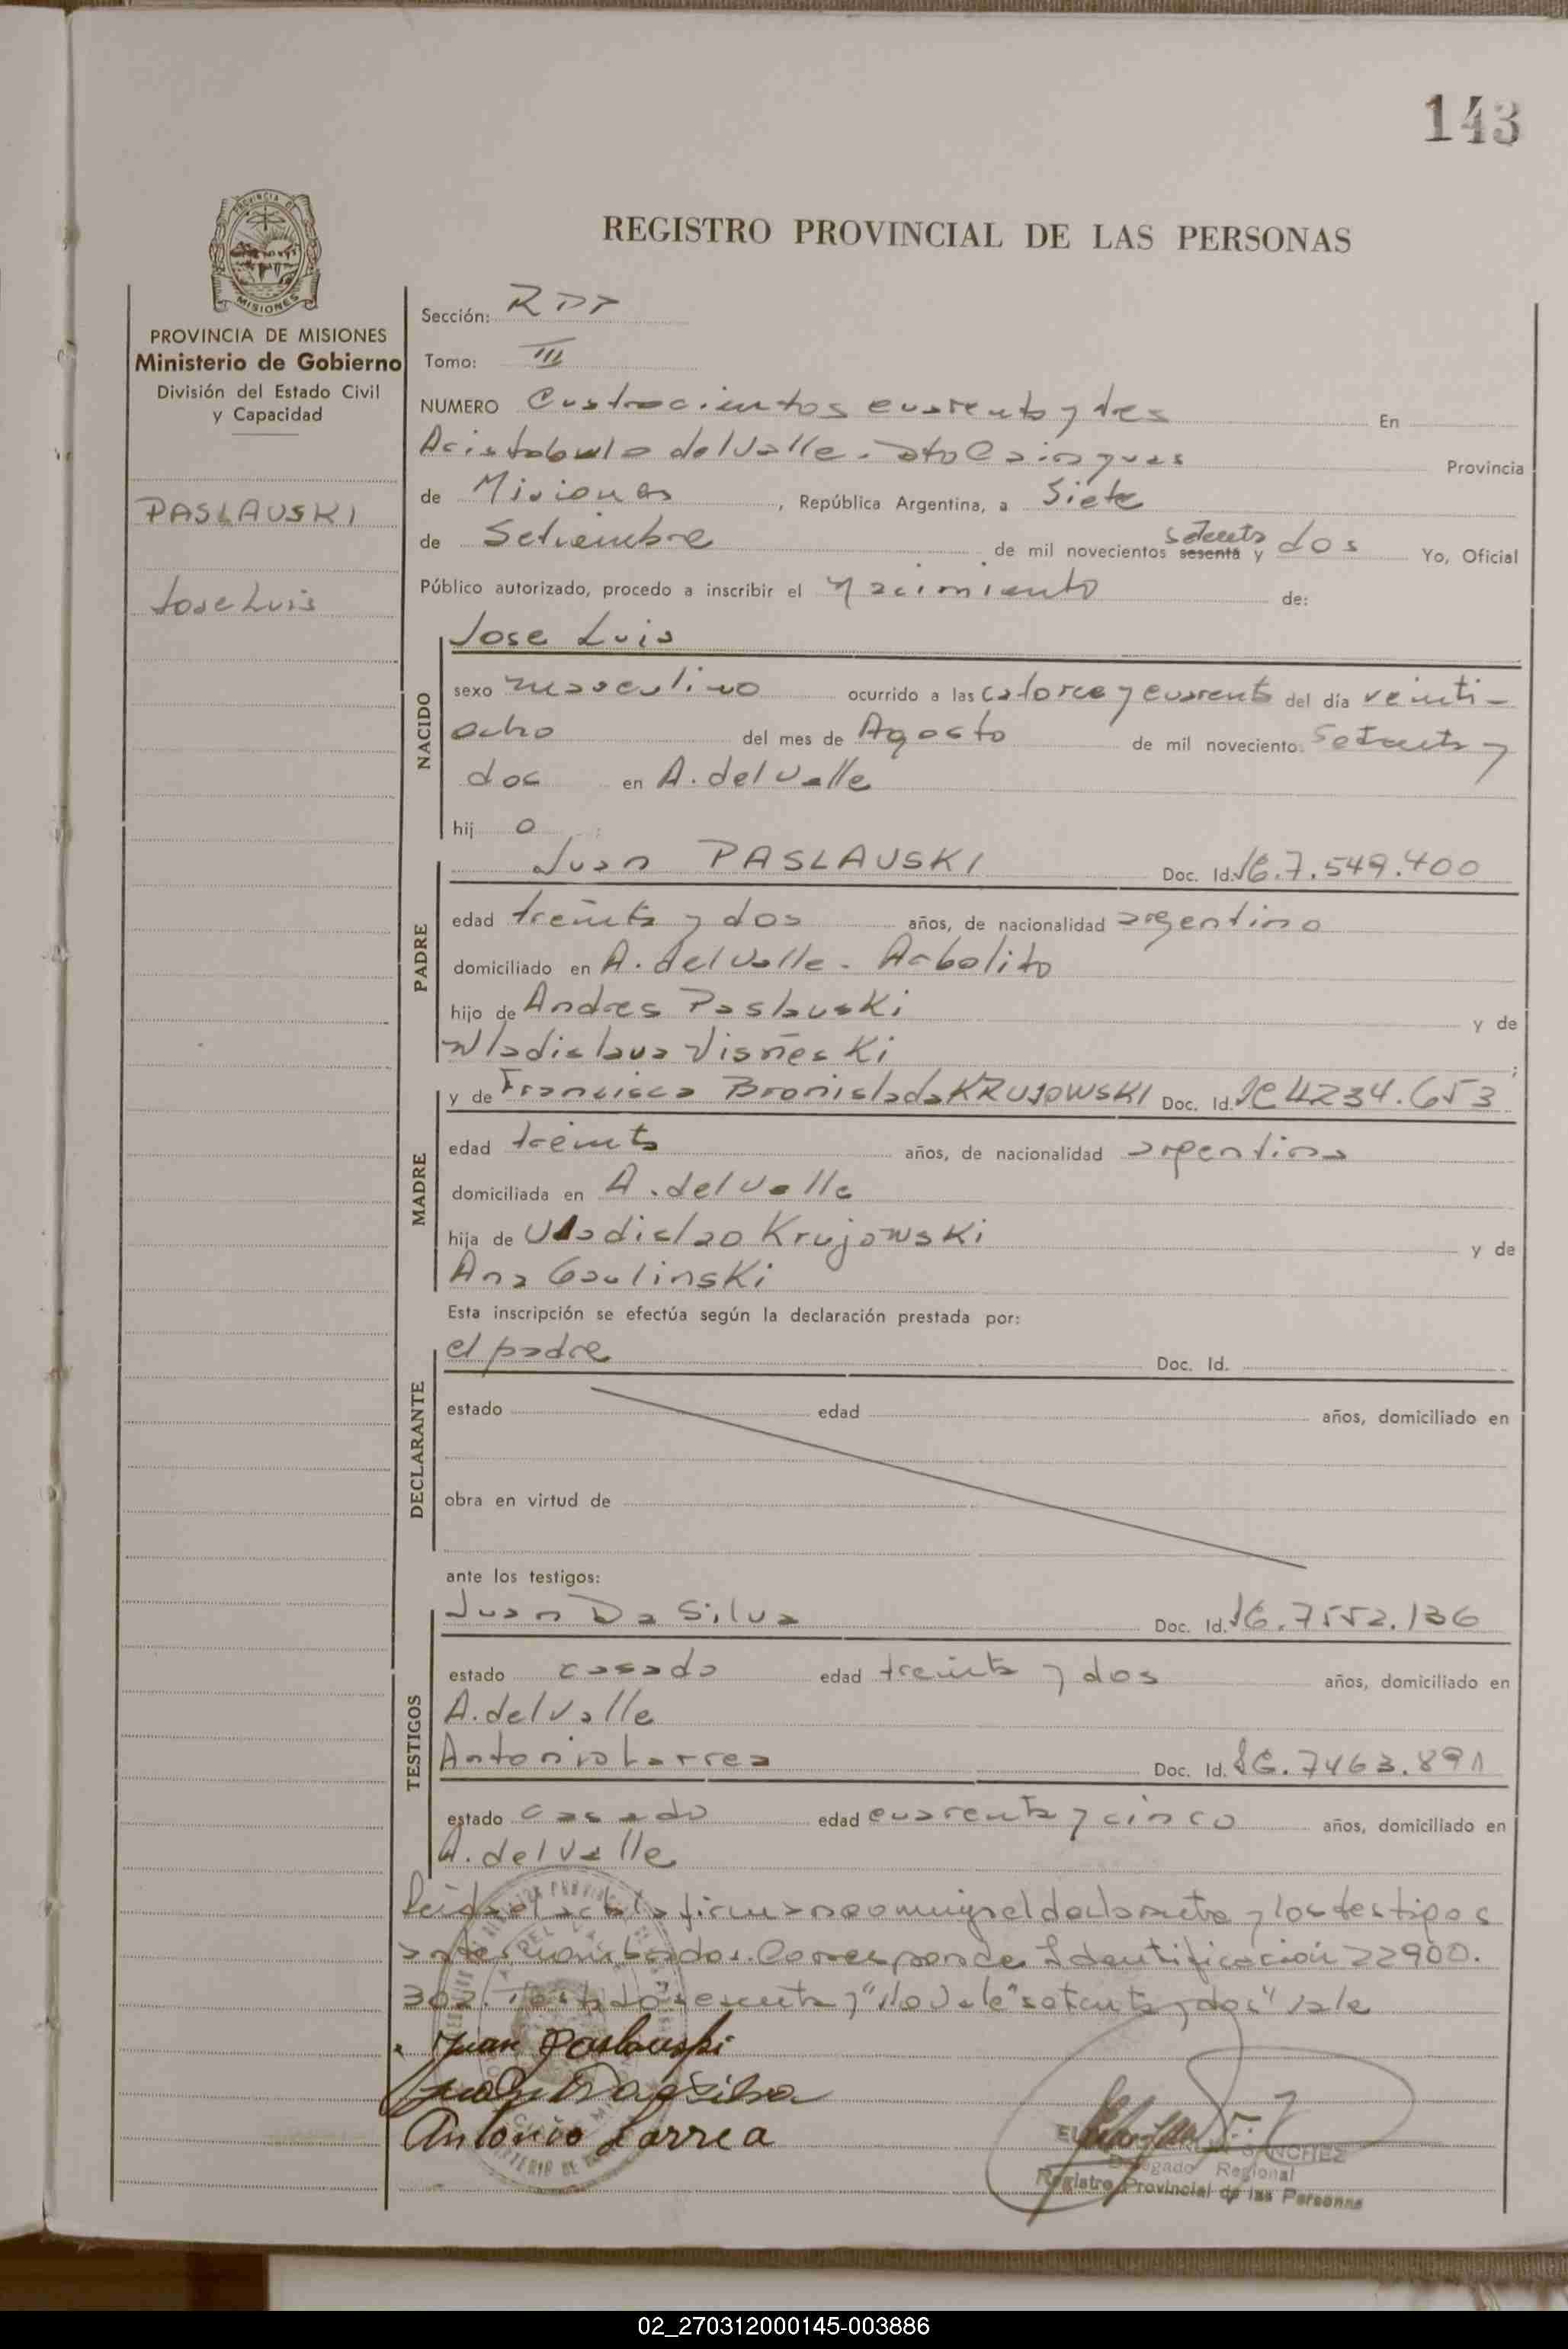 143
PROVINCIA DE MISIONES
REGISTRO PROVINCIAL DE LAS PERSONAS
PROVINCIA DE MISIONES
Ministerio de Gobierno
División del Estado Civil
y Capacidad
PASLAUSKI
Jose Luis
Sección:
Tomo: III
NUMERO Cuatrocientos cuarenta y tres En
Aristobulo del Valle. Dto Cainguas Provincia
de Misiones, República Argentina, a Siete
de Setiembre de mil novecientos sesenta setenta y dos Yo, Oficial
Público autorizado, procedo a inscribir el Nacimiento de:
NACIDO
Jose Luis
sexo masculino ocurrido a las catorce y cuarenta del día veinti-
ocho del mes de Agosto de mil noveciento. Setenta y
dos en A. del Valle
hij o
PADRE
Juan PASLAUSKI Doc. Id. 7.549.400
edad treinta y dos años, de nacionalidad argentino
domiciliado en A. del Valle. Arbolito
hijo de Andres Paslauski y de
Wladislava Visñeski ;
MADRE
y de Francisca Bronislada KRUJOWSKI Doc. Id. 4234.653
edad treinta años, de nacionalidad argentina
domiciliada en A. del Valle
hija de Uladislao Krujowski y de
Ana Gaulinski
Esta inscripción se efectúa según la declaración prestada por:
DECLARANTE
el padre Doc. Id.
estado edad años, domiciliado en
obra en virtud de
ante los testigos:
TESTIGOS
Juan Da Silva Doc. Id. 7552.136
estado casado edad treinta y dos años, domiciliado en
A. del Valle
Antonio Larrea Doc. Id. 7463.891
estado casado edad cuarenta y cinco años, domiciliado en
A. del Valle
Leida el acta la firman conmigo el declarante y los testigos
antes nombrados. Corresponde Identificación 22900.
302. Testado "sesenta y" No Vale "setenta y dos" Vale
Juan Paslauski
Juan Da Silva
Antonio Larrea
SANCHEZ
Delegado Regional
Registro Provincial de las Personas
02_270312000145-003886